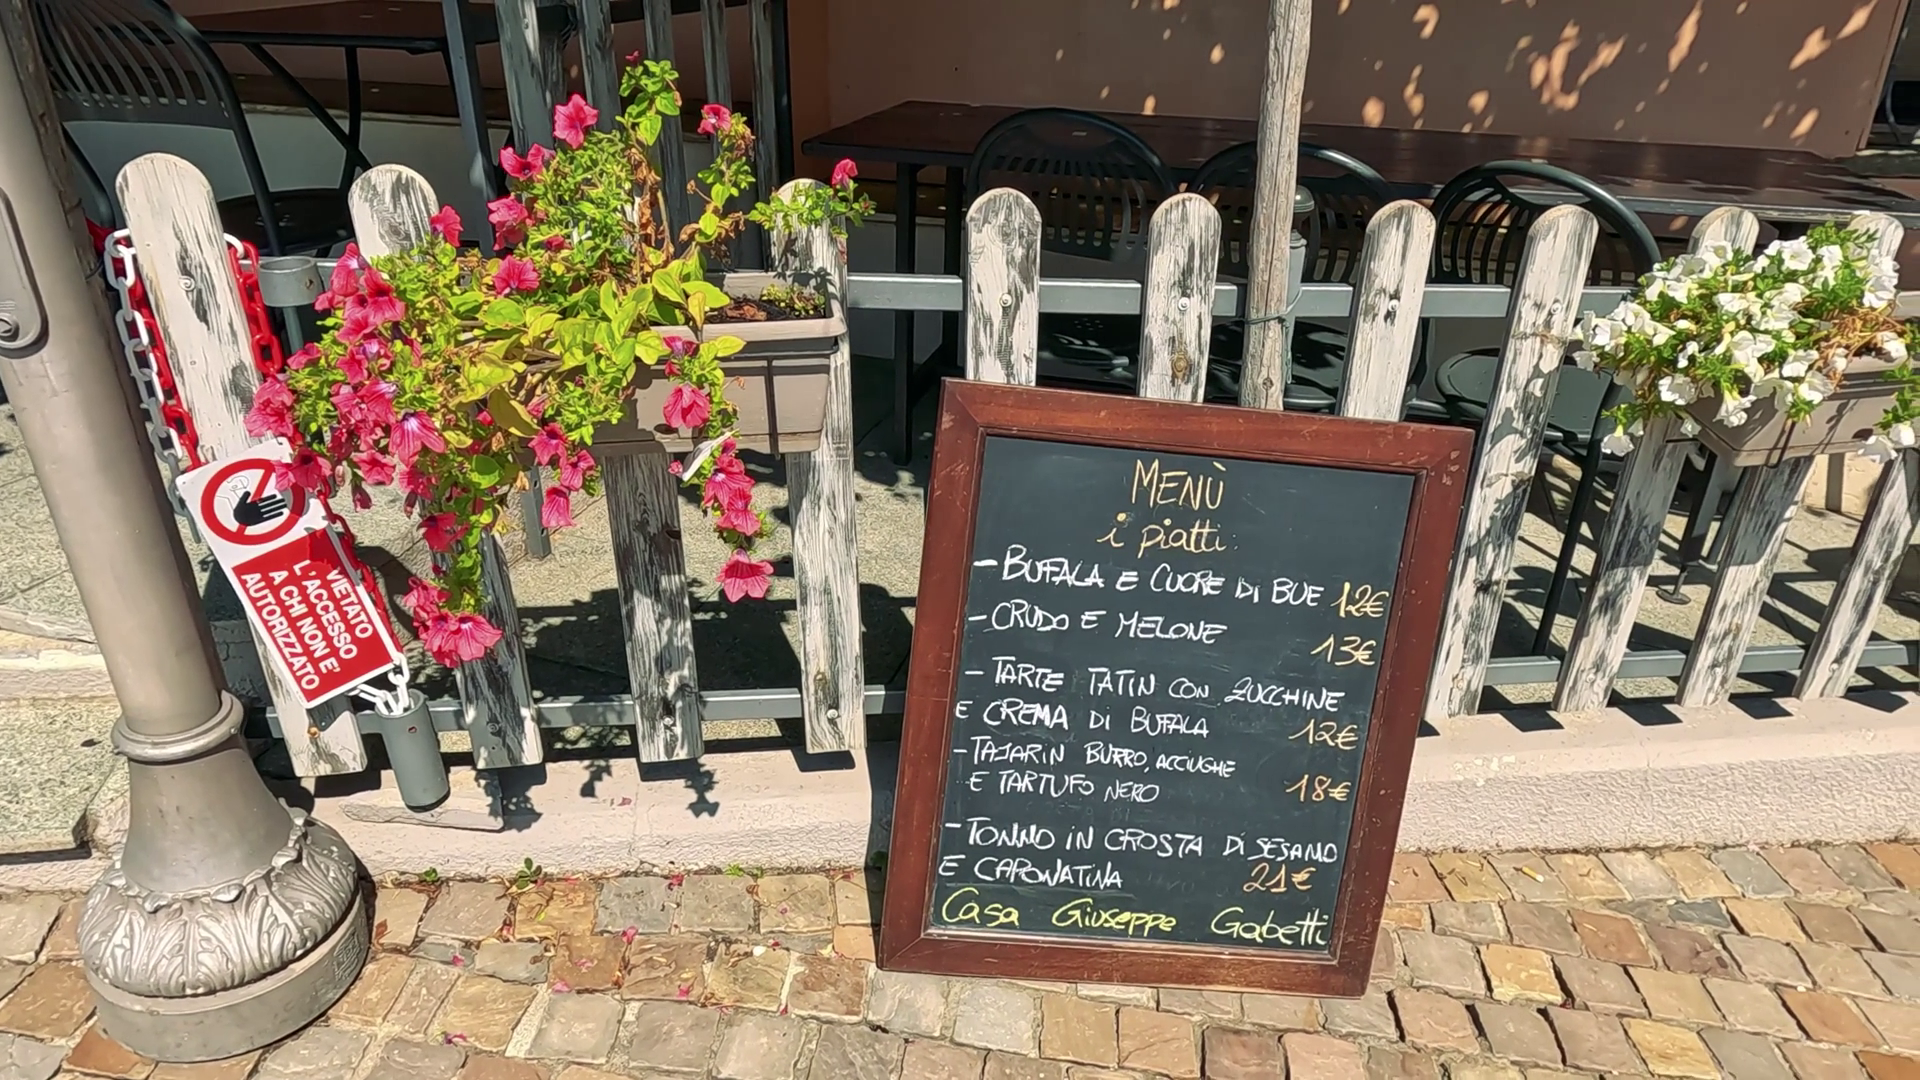 VIETATO
L'ACCESSO
A CHI NON E'
AUTORIZZATO
MENÙ
i piatti:
- BUFALA E CUORE DI BUE 12€
- CRUDO E MELONE 13€
- TARTE TATIN CON ZUCCHINE
E CREMA DI BUFALA 12€
- TAJARIN BURRO, ACCIUGHE
E TARTUFO NERO 18€
- TONNO IN CROSTA DI SESAMO
E CAPONATINA 21€
Casa Giuseppe Gabetti